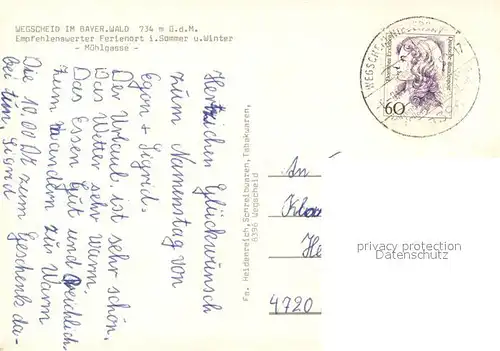 WEGSCHEID IM BAYER.WALD   734 m ü.d.M.
Empfehlenswerter Ferienort i.Sommer u.Winter
- Mühlgasse -
Herzlichen Glückwünsch
zum Namenstag von
Egon + Sigrid.
Der Urlaub ist sehr schön,
Das Wetter sehr Warm.
Das Essen Gut und Reichlich,
Zum wandern zu Warm
Die 10.00 DM zum Geschenk da-
bei tun, Sigrid
Fa. Heidenreich, Schreibwaren, Tabakwaren,
8396 Wegscheid
WEGSCHEID
60
An
He
4720
privacy protection
Datenschutz